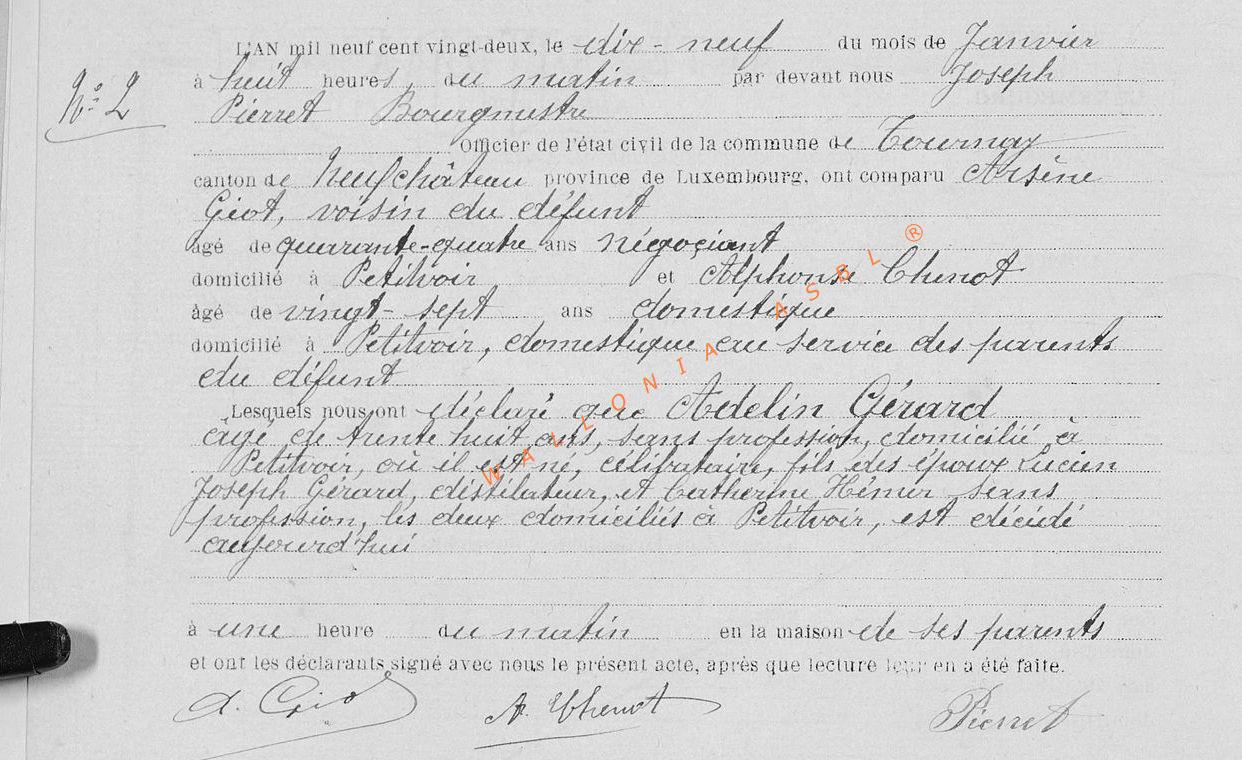 L'AN mil neuf cent vingt-deux, le dix-neuf du mois de Janvier
N° 2
à huit heures, du matin par devant nous Joseph
Pierret Bourgmestre
Officier de l'état civil de la commune de Tournay
canton de Neufchâteau province de Luxembourg, ont comparu Arsène
Giot, voisin du défunt
âgé de quarante-quatre ans négociant
domicilié à Petitvoir et Alphonse Chenot
âgé de vingt-sept ans domestique
domicilié à Petitvoir, domestique au service des parents
du défunt
Lesquels nous ont déclaré que Adelin Gérard
âgé de trente huit ans, sans profession, domicilié à
Petitvoir, où il est né, célibataire, fils des époux Lucien
Joseph Gérard, distilateur, et Catherine Hémer sans
profession, les deux domiciliés à Petitvoir, est décédé
aujourd'hui
à une heure du matin en la maison de ses parents
et ont les déclarants signé avec nous le présent acte, après que lecture leur en a été faite.
A. Giot A. Chenot Pierret
WALLONIA ASBL ®